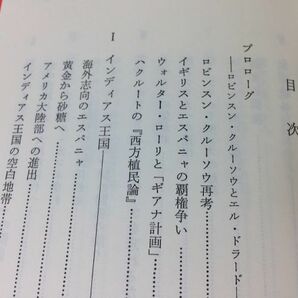 目次
プロローグ
――ロビンスン・クルーソウとエル・ドラード
ロビンスン・クルーソウ再考
イギリスとエスパニャの覇権争い
ウォルター・ローリと「ギアナ計画」
ハクルートの『西方植民論』
I
インディアス王国
海外志向のエスパニャ
黄金から砂糖へ
アメリカ大陸部への進出
インディアス王国の空白地帯